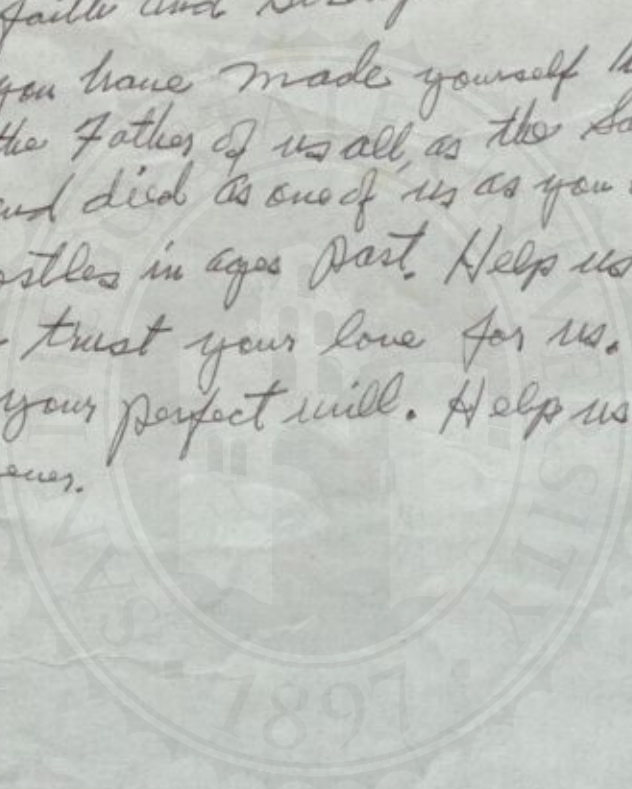 faith and
you have made yourself
the Father of us all, as the
and died as one of us as you
ostles in ages past. Help us
trust your love for us.
your perfect will. Help us
ever.
SAN DIEGO STATE UNIVERSITY
1897